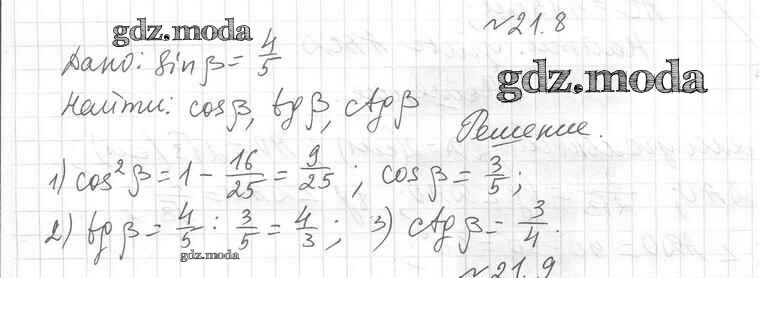 №21.8
gdz.moda
Дано: sin β = 4/5
gdz.moda
Найти: cos β, tg β, ctg β
Решение.
1) cos² β = 1 - 16/25 = 9/25 ; cos β = 3/5 ;
2) tg β = 4/5 : 3/5 = 4/3 ; 3) ctg β = 3/4.
gdz.moda
№21.9